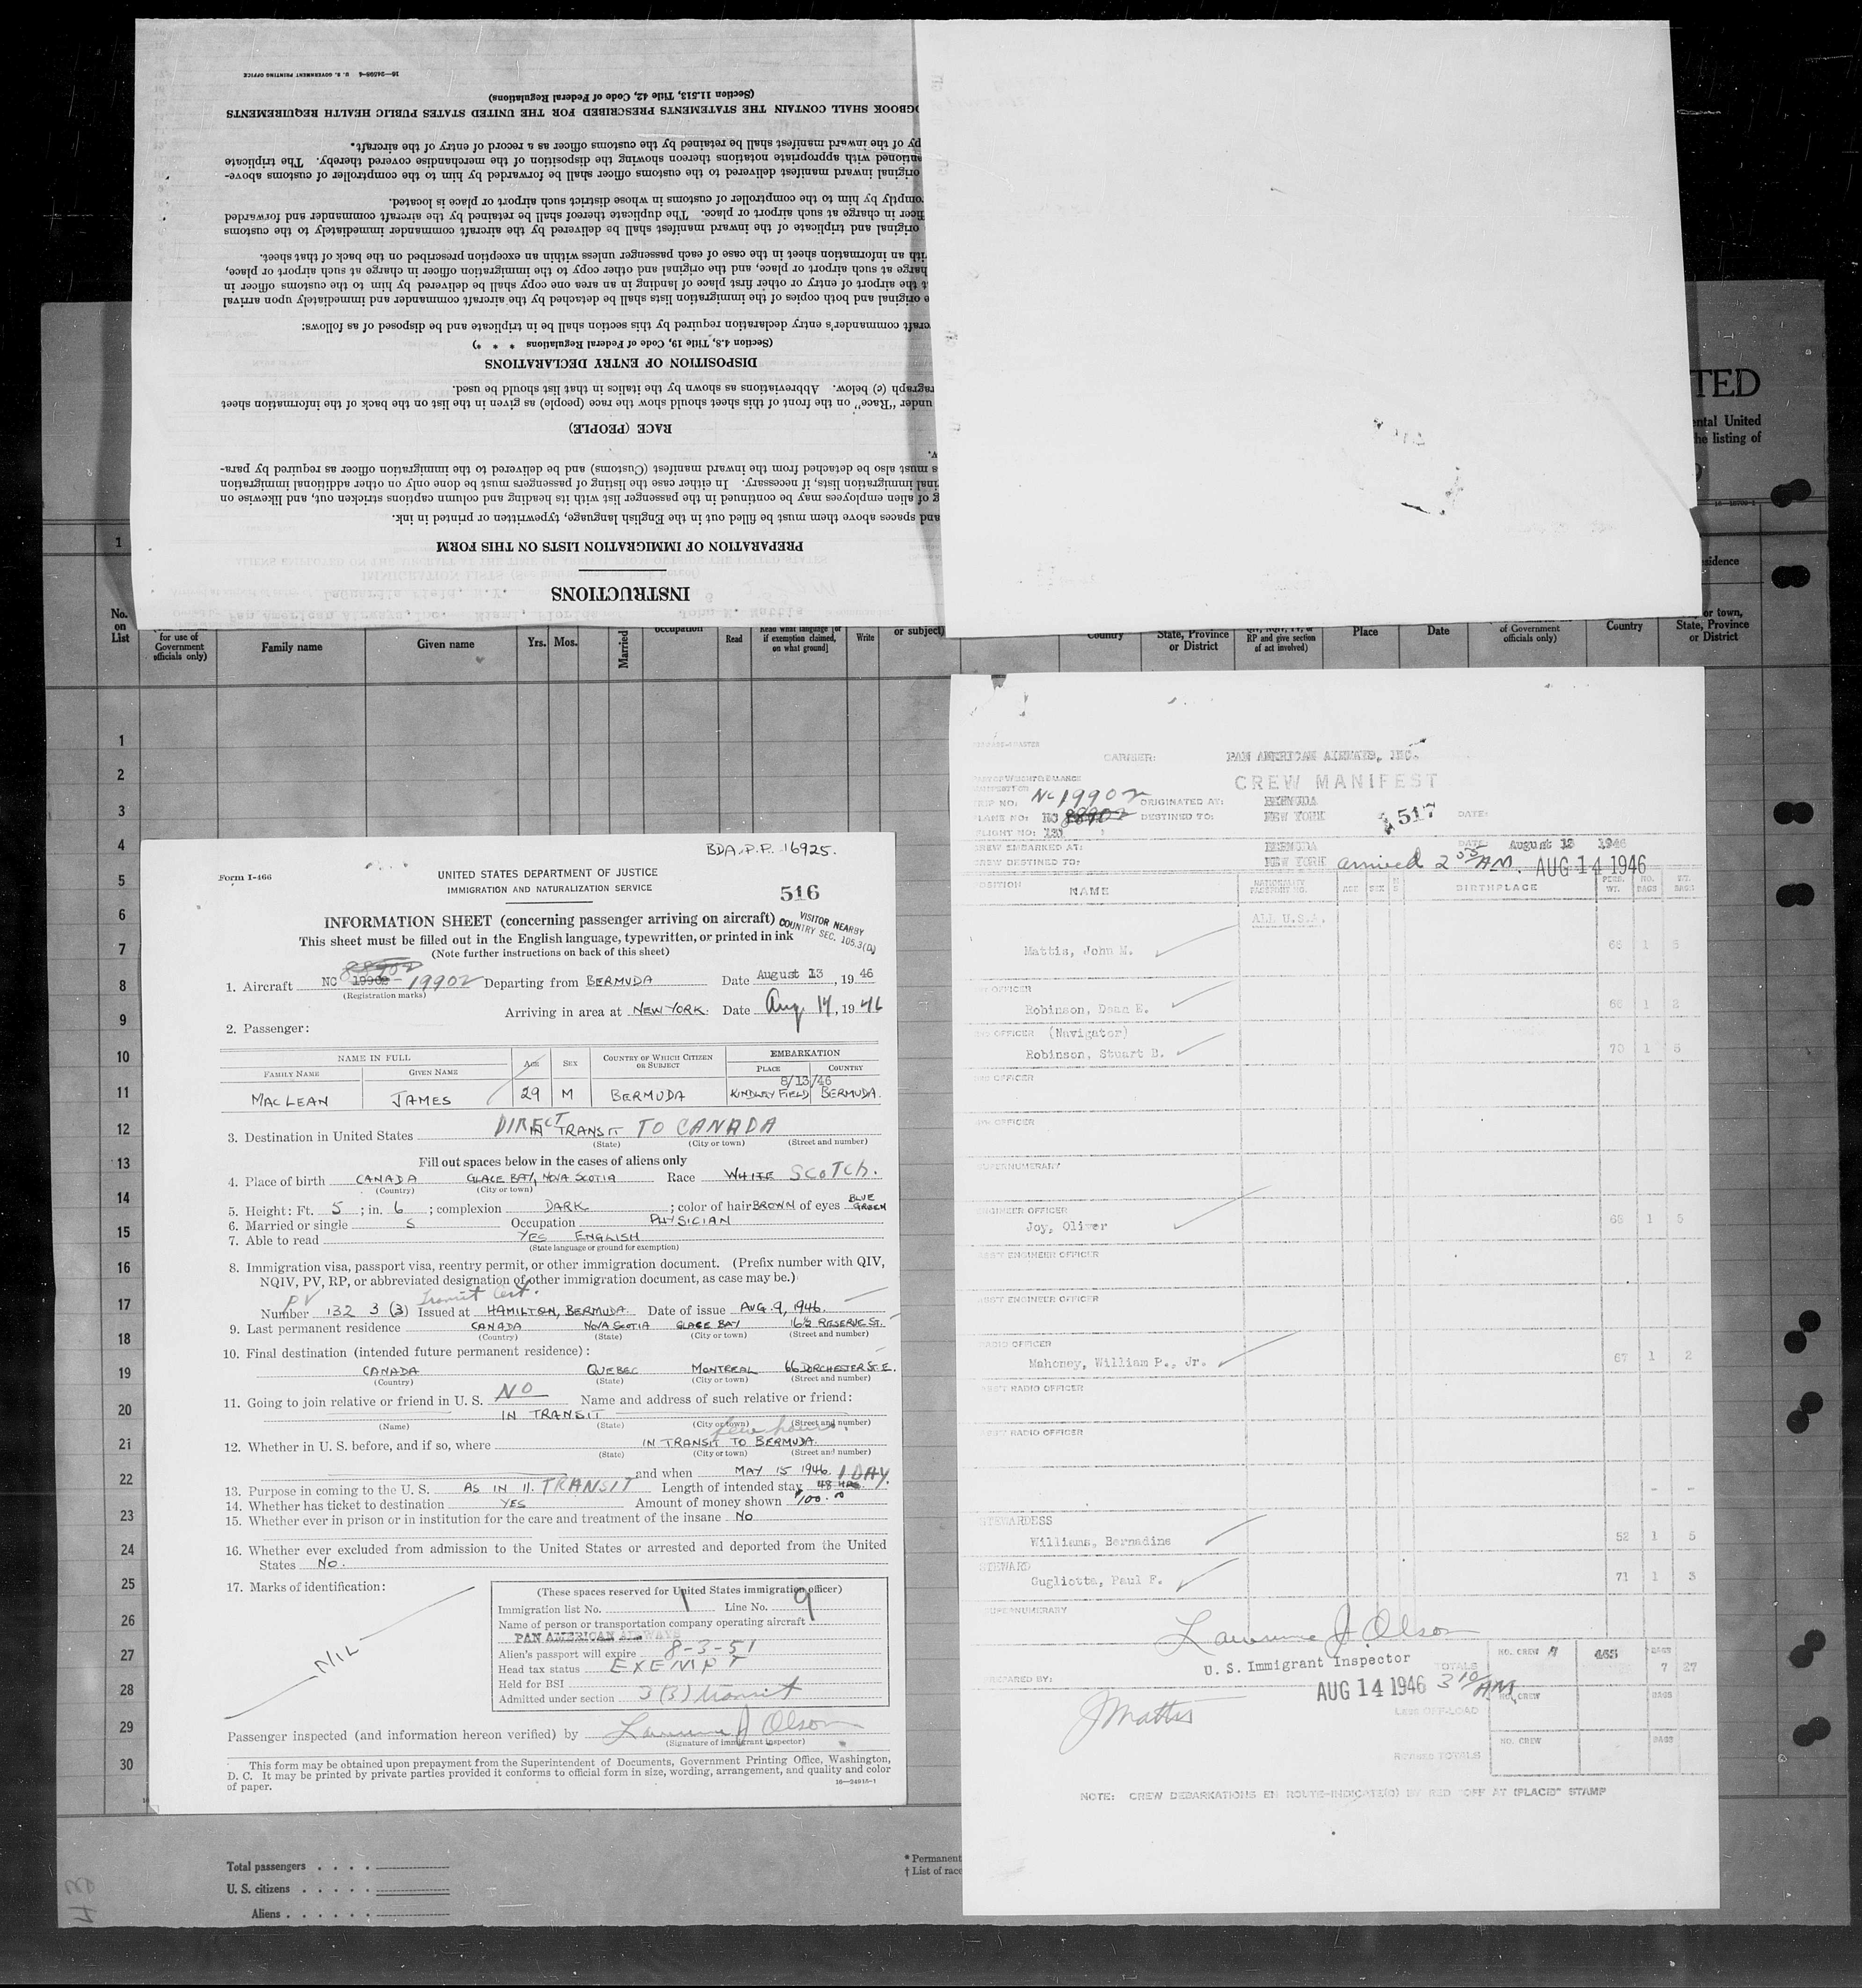 INSTRUCTIONS
PREPARATION OF IMMIGRATION LISTS ON THIS FORM
and spaces above them must be filled out in the English language, typewritten or printed in ink.
of alien employees may be continued in the passenger list with its heading and column captions stricken out, and likewise on
immigration lists, if necessary. In either case the listing of passengers must be done only on other additional immigration
must also be detached from the inward manifest (Customs) and be delivered to the immigration officer as required by para-
RACE (PEOPLE)
under "Race" on the front of this sheet should show the race (people) as given in the list on the back of the information sheet
(c) below. Abbreviations as shown by the italics in that list should be used.
DISPOSITION OF ENTRY DECLARATIONS
(Section 4.8, Title 19, Code of Federal Regulations * * *)
commander's entry declaration required by this section shall be in triplicate and be disposed of as follows:
original and both copies of the immigration lists shall be detached by the aircraft commander and immediately upon arrival
the airport of entry or other first place of landing in an area one copy shall be delivered by him to the customs officer in
charge at such airport or place, and the original and other copy to the immigration officer in charge at such airport or place,
with an information sheet in the case of each passenger unless within an exception prescribed on the back of that sheet.
original and triplicate of the inward manifest shall be delivered by the aircraft commander immediately to the customs
in charge at such airport or place. The duplicate thereof shall be retained by the aircraft commander and forwarded
by him to the comptroller of customs in whose district such airport or place is located.
original inward manifest delivered to the customs officer shall be forwarded by him to the comptroller of customs above-
with appropriate notations thereon showing the disposition of the merchandise covered thereby. The triplicate
of the inward manifest shall be retained by the customs officer as a record of entry of the aircraft.
SHALL CONTAIN THE STATEMENTS PRESCRIBED FOR THE UNITED STATES PUBLIC HEALTH REQUIREMENTS
(Section 11.513, Title 42, Code of Federal Regulations)
16—24598-4 U. S. GOVERNMENT PRINTING OFFICE
TED
ental United
he listing of
sidence
No. on List
for use of Government officials only)
Family name
Given name
Yrs. Mos.
Married
occupation
Read
Read what language [or if exemption claimed, on what ground]
Write
or subject)
Country
State, Province or District
RP and give section of act involved)
Place
Date
of Government officials only)
Country
or town, State, Province or District
1
1
2
3
4
5
6
7
8
9
10
11
12
13
14
15
16
17
18
19
20
21
22
23
24
25
26
27
28
29
30
BDA.P.P. 16925.
Form I-466
UNITED STATES DEPARTMENT OF JUSTICE
IMMIGRATION AND NATURALIZATION SERVICE
516
INFORMATION SHEET (concerning passenger arriving on aircraft)
VISITOR NEARBY
COUNTRY SEC. 105.3(a)
This sheet must be filled out in the English language, typewritten, or printed in ink
(Note further instructions on back of this sheet)
88902
1. Aircraft NC 19902 - 19902 Departing from BERMUDA Date August 13, 19 46
(Registration marks)
Arriving in area at NEW YORK. Date Aug 14, 19 46
2. Passenger:
NAME IN FULL AGE SEX COUNTRY OF WHICH CITIZEN OR SUBJECT EMBARKATION
FAMILY NAME GIVEN NAME PLACE COUNTRY
8/13/46
MACLEAN JAMES 29 M BERMUDA KINDLEY FIELD BERMUDA.
3. Destination in United States DIRECT IN TRANSIT TO CANADA
(State) (City or town) (Street and number)
Fill out spaces below in the cases of aliens only
4. Place of birth CANADA GLACE BAY, NOVA SCOTIA Race WHITE SCOTCH.
(Country) (City or town)
5. Height: Ft. 5; in. 6; complexion DARK; color of hair BROWN of eyes BLUE GREEN
6. Married or single S Occupation PHYSICIAN
7. Able to read YES ENGLISH
(State language or ground for exemption)
8. Immigration visa, passport visa, reentry permit, or other immigration document. (Prefix number with QIV,
NQIV, PV, RP, or abbreviated designation of other immigration document, as case may be.)
PV Transit Cert.
Number 132 3 (3) Issued at HAMILTON, BERMUDA. Date of issue AUG. 9, 1946.
9. Last permanent residence CANADA NOVA SCOTIA GLACE BAY 16½ RESERVE ST.
(Country) (State) (City or town) (Street and number)
10. Final destination (intended future permanent residence):
CANADA QUEBEC MONTREAL 66 DORCHESTER ST. E.
(Country) (State) (City or town) (Street and number)
11. Going to join relative or friend in U. S. NO Name and address of such relative or friend:
IN TRANSIT
(Name) (State) (City or town) (Street and number)
few hours.
12. Whether in U. S. before, and if so, where IN TRANSIT TO BERMUDA.
(State) (City or town) (Street and number)
and when MAY 15 1946. 1 DAY.
13. Purpose in coming to the U. S. AS IN 11. TRANSIT Length of intended stay 48 HRS.
14. Whether has ticket to destination YES Amount of money shown $100.00
15. Whether ever in prison or in institution for the care and treatment of the insane NO
16. Whether ever excluded from admission to the United States or arrested and deported from the United
States NO.
17. Marks of identification:
NIL
(These spaces reserved for United States immigration officer)
Immigration list No. 1 Line No. 9
Name of person or transportation company operating aircraft
PAN AMERICAN AIRWAYS
Alien's passport will expire 8-3-51
Head tax status EXEMPT
Held for BSI
Admitted under section 3(3) transit
Passenger inspected (and information hereon verified) by Lawrence J Olson
(Signature of immigrant inspector)
This form may be obtained upon prepayment from the Superintendent of Documents, Government Printing Office, Washington,
D. C. It may be printed by private parties provided it conforms to official form in size, wording, arrangement, and quality and color
of paper.
16—24916-1
CARRIER: PAN AMERICAN AIRWAYS, INC.
CREW MANIFEST
TRIP NO: NC19902 ORIGINATED AT: BERMUDA
PLANE NO: NC 88902 DESTINED TO: NEW YORK 517 DATE:
FLIGHT NO: 131
CREW EMBARKED AT: BERMUDA DATE: August 13 1946
CREW DESTINED TO: NEW YORK arrived 2 55 AM. AUG 14 1946
POSITION NAME NATIONALITY PASSPORT NO. AGE SEX BIRTHPLACE PERS. WT. NO. BAGS WT. BAGS
ALL U.S.A.
Mattis, John M. 66 1 5
OFFICER
Robinson, Dean E. 66 1 2
OFFICER (Navigator)
Robinson, Stuart B. 70 1 5
OFFICER
OFFICER
SUPERNUMERARY
ENGINEER OFFICER
Joy, Oliver 68 1 5
ASS'T ENGINEER OFFICER
ASS'T ENGINEER OFFICER
RADIO OFFICER
Mahoney, William P., Jr. 67 1 2
ASS'T RADIO OFFICER
ASS'T RADIO OFFICER
- -
STEWARDESS
Williams, Bernadine 52 1 5
STEWARD
Gugliotta, Paul F. 71 1 3
SUPERNUMERARY
Lawrence J. Olson
U. S. Immigrant Inspector
TOTALS NO. CREW 7 465 BAGS 7 27
PREPARED BY:
AUG 14 1946 3 10 AM
J Mattis
NO. CREW BAGS
LESS OFF-LOAD
NO. CREW BAGS
REVISED TOTALS
NOTE: CREW DEBARKATIONS EN ROUTE-INDICATE(D) BY RED "OFF AT (PLACE)" STAMP
Total passengers . . . .
U. S. citizens . . . . .
Aliens . . . . . .
* Permanent
† List of race